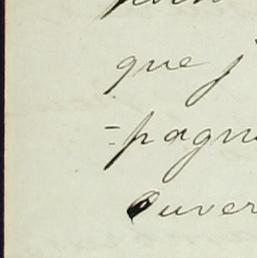 que j
=pagn
Ouver